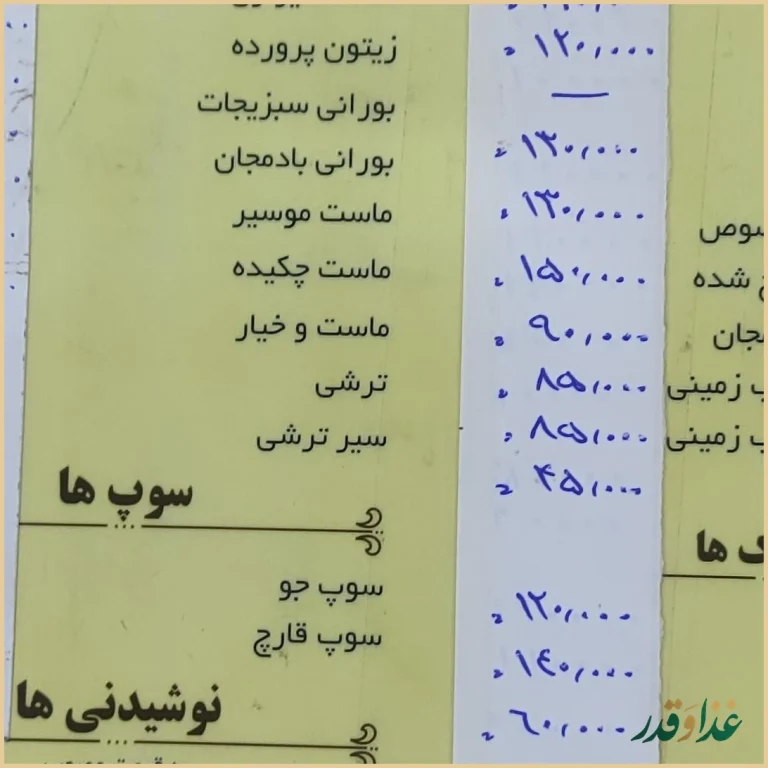 زیتون پرورده ۱۲۰,۰۰۰
بورانی سبزیجات —
بورانی بادمجان ۱۳۰,۰۰۰
ماست موسیر ۱۳۰,۰۰۰
ماست چکیده ۱۵۰,۰۰۰
ماست و خیار ۹۰,۰۰۰
ترشی ۸۵,۰۰۰
سیر ترشی ۸۵,۰۰۰
۴۵,۰۰۰
سوپ ها
سوپ جو ۱۲۰,۰۰۰
سوپ قارچ ۱۴۰,۰۰۰
نوشیدنی ها
۶۰,۰۰۰
شده
زمینی
زمینی
ها
غذا و قدر